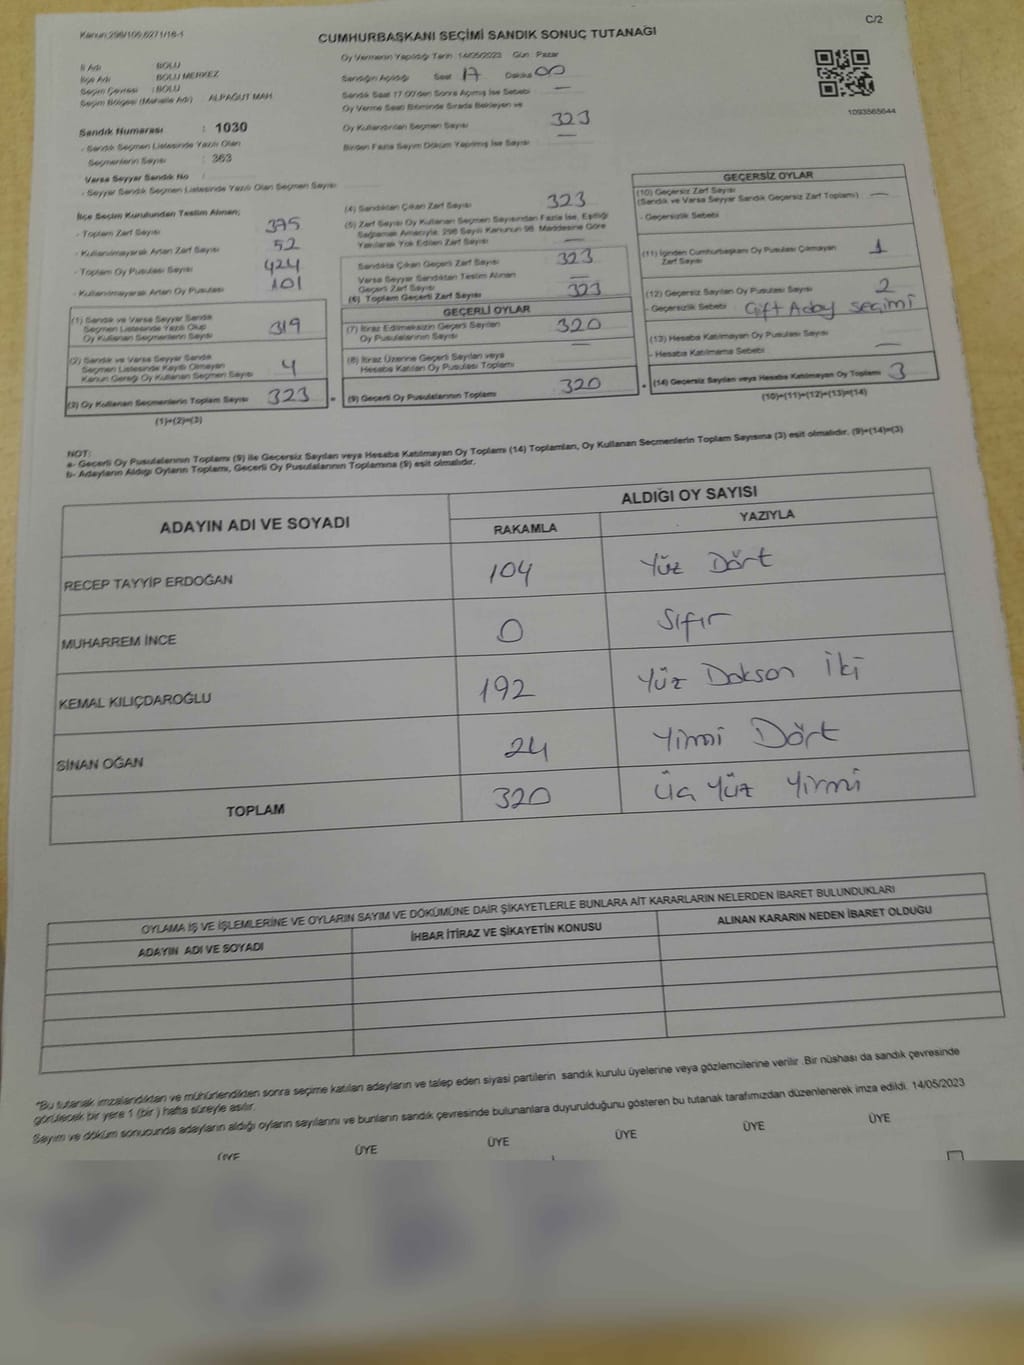 C/2
Kanun:298/109,6271/18-1
CUMHURBAŞKANI SEÇİMİ SANDIK SONUÇ TUTANAĞI
Oy Vermenin Yapıldığı Tarih :14/05/2023 Gün :Pazar
İl Adı : BOLU
İlçe Adı : BOLU MERKEZ
Seçim Çevresi : BOLU
Seçim Bölgesi (Mahalle Adı) : ALPAĞUT MAH.
Sandığın Açıldığı Saat 17 Dakika 00
Sandık Saat 17:00'den Sonra Açımış İse Sebebi —
Oy Verme Saati Bitiminde Sırada Bekleyen ve
Oy Kullandırılan Seçmen Sayısı 323
Birden Fazla Sayım Döküm Yapılmış İse Sayısı —
1093565644
Sandık Numarası : 1030
- Sandık Seçmen Listesinde Yazılı Olan
Seçmenlerin Sayısı : 363
Varsa Seyyar Sandık No :
- Seyyar Sandık Seçmen Listesinde Yazılı Olan Seçmen Sayısı
İlçe Seçim Kurulundan Teslim Alınan;
- Toplam Zarf Sayısı 375
- Kullanılmayarak Artan Zarf Sayısı 52
- Toplam Oy Pusulası Sayısı 424
- Kullanılmayarak Artan Oy Pusulası 101
(1) Sandık ve Varsa Seyyar Sandık
Seçmen Listesinde Yazılı Olup
Oy Kullanan Seçmenlerin Sayısı 319
(2) Sandık ve Varsa Seyyar Sandık
Seçmen Listesinde Kayıtlı Olmayan
Kanun Gereği Oy Kullanan Seçmen Sayısı 4
(3) Oy Kullanan Seçmenlerin Toplam Sayısı 323
(1)+(2)=(3)
(4) Sandıktan Çıkan Zarf Sayısı 323
(5) Zarf Sayısı Oy Kullanan Seçmen Sayısından Fazla İse, Eşitliği
Sağlamak Amacıyla, 298 Sayılı Kanunun 98. Maddesine Göre
Yakılarak Yok Edilen Zarf Sayısı —
Sandıkta Çıkan Geçerli Zarf Sayısı 323
Varsa Seyyar Sandıktan Teslim Alınan
Geçerli Zarf Sayısı —
(6) Toplam Geçerli Zarf Sayısı 323
GEÇERLİ OYLAR
(7) İtiraz Edilmeksizin Geçerli Sayılan
Oy Pusulalarının Sayısı 320
(8) İtiraz Üzerine Geçerli Sayılan veya
Hesaba Katılan Oy Pusulası Toplamı —
= (9) Geçerli Oy Pusulalarının Toplamı 320
GEÇERSİZ OYLAR
(10) Geçersiz Zarf Sayısı
(Sandık ve Varsa Seyyar Sandık Geçersiz Zarf Toplamı) —
- Geçersizlik Sebebi
(11) İçinden Cumhurbaşkanı Oy Pusulası Çıkmayan
Zarf Sayısı 1
(12) Geçersiz Sayılan Oy Pusulası Sayısı 2
- Geçersizlik Sebebi Çift Aday seçimi
(13) Hesaba Katılmayan Oy Pusulası Sayısı
- Hesaba Katılmama Sebebi —
+ (14) Geçersiz Sayılan veya Hesaba Katılmayan Oy Toplamı 3
(10)+(11)+(12)+(13)=(14)
NOT:
a- Geçerli Oy Pusulalarının Toplamı (9) ile Geçersiz Sayılan veya Hesaba Katılmayan Oy Toplamı (14) Toplamları, Oy Kullanan Seçmenlerin Toplam Sayısına (3) eşit olmalıdır. (9)+(14)=(3)
b- Adayların Aldığı Oyların Toplamı, Geçerli Oy Pusulalarının Toplamına (9) eşit olmalıdır.
ADAYIN ADI VE SOYADI
ALDIĞI OY SAYISI
RAKAMLA YAZIYLA
RECEP TAYYİP ERDOĞAN 104 Yüz Dört
MUHARREM İNCE 0 Sıfır
KEMAL KILIÇDAROĞLU 192 Yüz Dokson İki
SİNAN OĞAN 24 Yirmi Dört
TOPLAM 320 Üç Yüz Yirmi
OYLAMA İŞ VE İŞLEMLERİNE VE OYLARIN SAYIM VE DÖKÜMÜNE DAİR ŞİKAYETLERLE BUNLARA AİT KARARLARIN NELERDEN İBARET BULUNDUKLARI
ADAYIN ADI VE SOYADI İHBAR İTİRAZ VE ŞİKAYETİN KONUSU ALINAN KARARIN NEDEN İBARET OLDUĞU
"Bu tutanak imzalandıktan ve mühürlendikten sonra seçime katılan adayların ve talep eden siyasi partilerin sandık kurulu üyelerine veya gözlemcilerine verilir .Bir nüshası da sandık çevresinde
görülecek bir yere 1 (bir ) hafta süreyle asılır.
Sayım ve döküm sonucunda adayların aldığı oyların sayılarını ve bunların sandık çevresinde bulunanlara duyurulduğunu gösteren bu tutanak tarafımızdan düzenlenerek imza edildi. 14/05/2023
ÜYE ÜYE ÜYE ÜYE ÜYE ÜYE